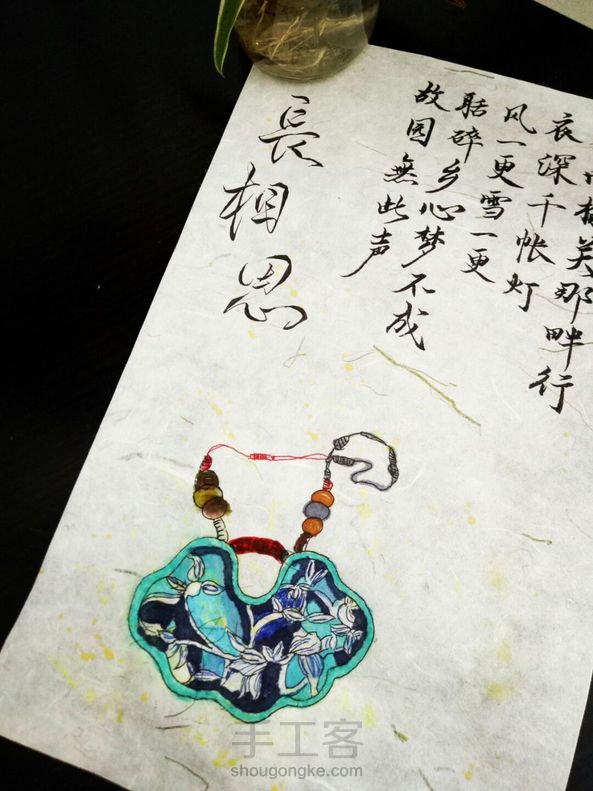 关那畔行
夜深千帐灯
风一更雪一更
聒碎乡心梦不成
故园無此声
長相思
手工客
shougongke.com